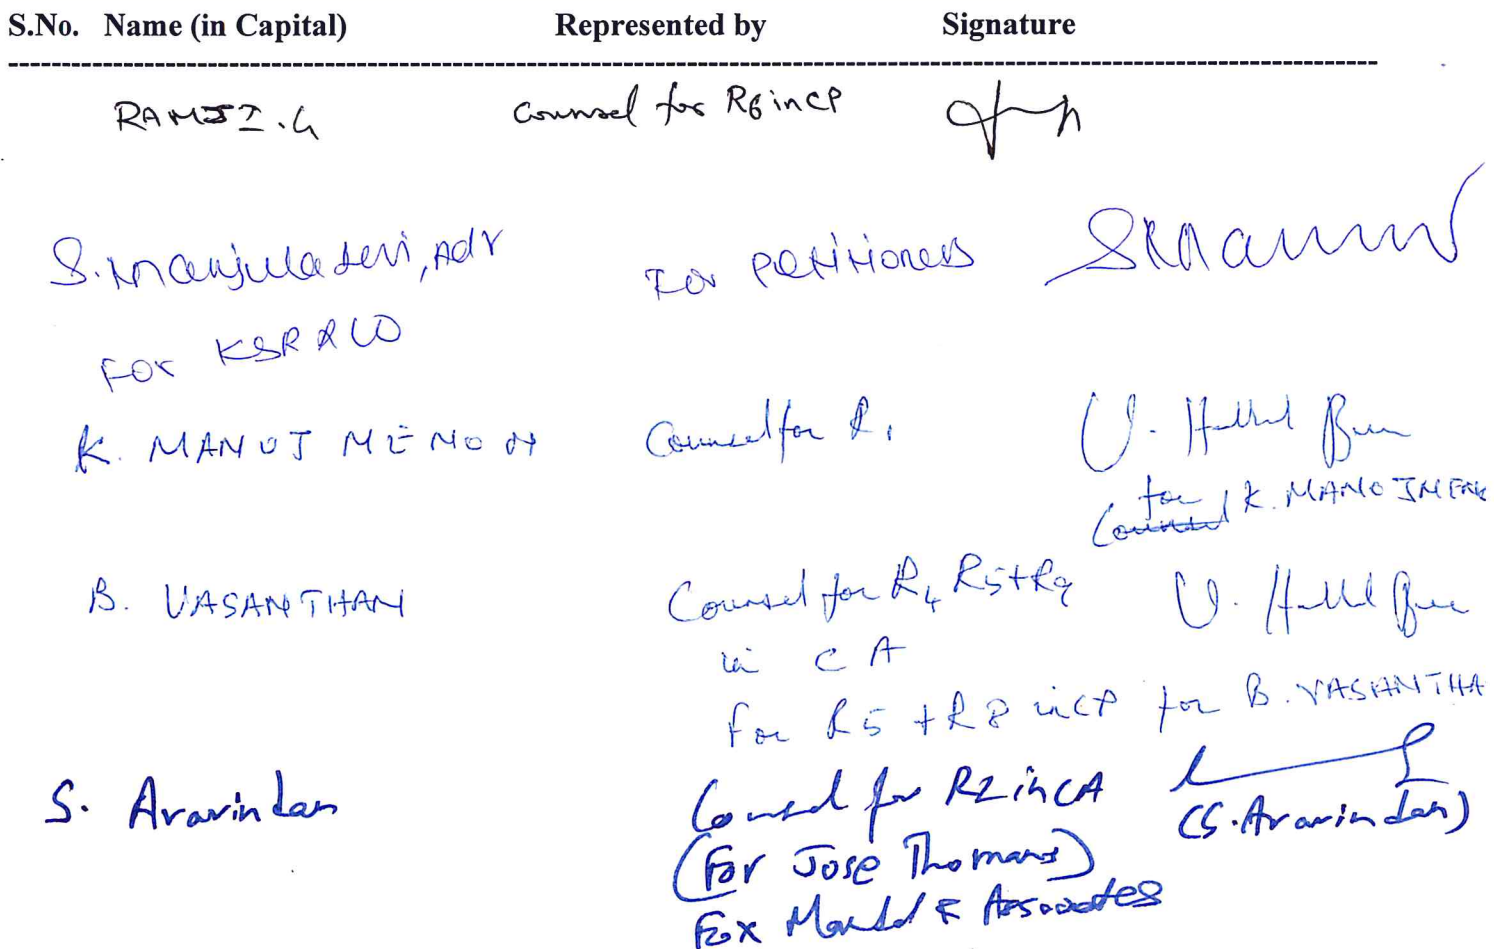 S.No. Name (in Capital) Represented by Signature
RAMJI.G Counsel for R6 in CP
S. Manjula Devi, Adv For Petitioners
For KSR & Co
K. MANOJ MENON Counsel for R1
for K. MANOJ MENON
B. VASANTHAN Counsel for R4 R5+R9
in CA
For R5 + R8 in CP for B. VASANTHA
S. Aravindan Counsel for R2 in CA (S. Aravindan)
(For Jose Thomas)
Fox Mandal & Associates